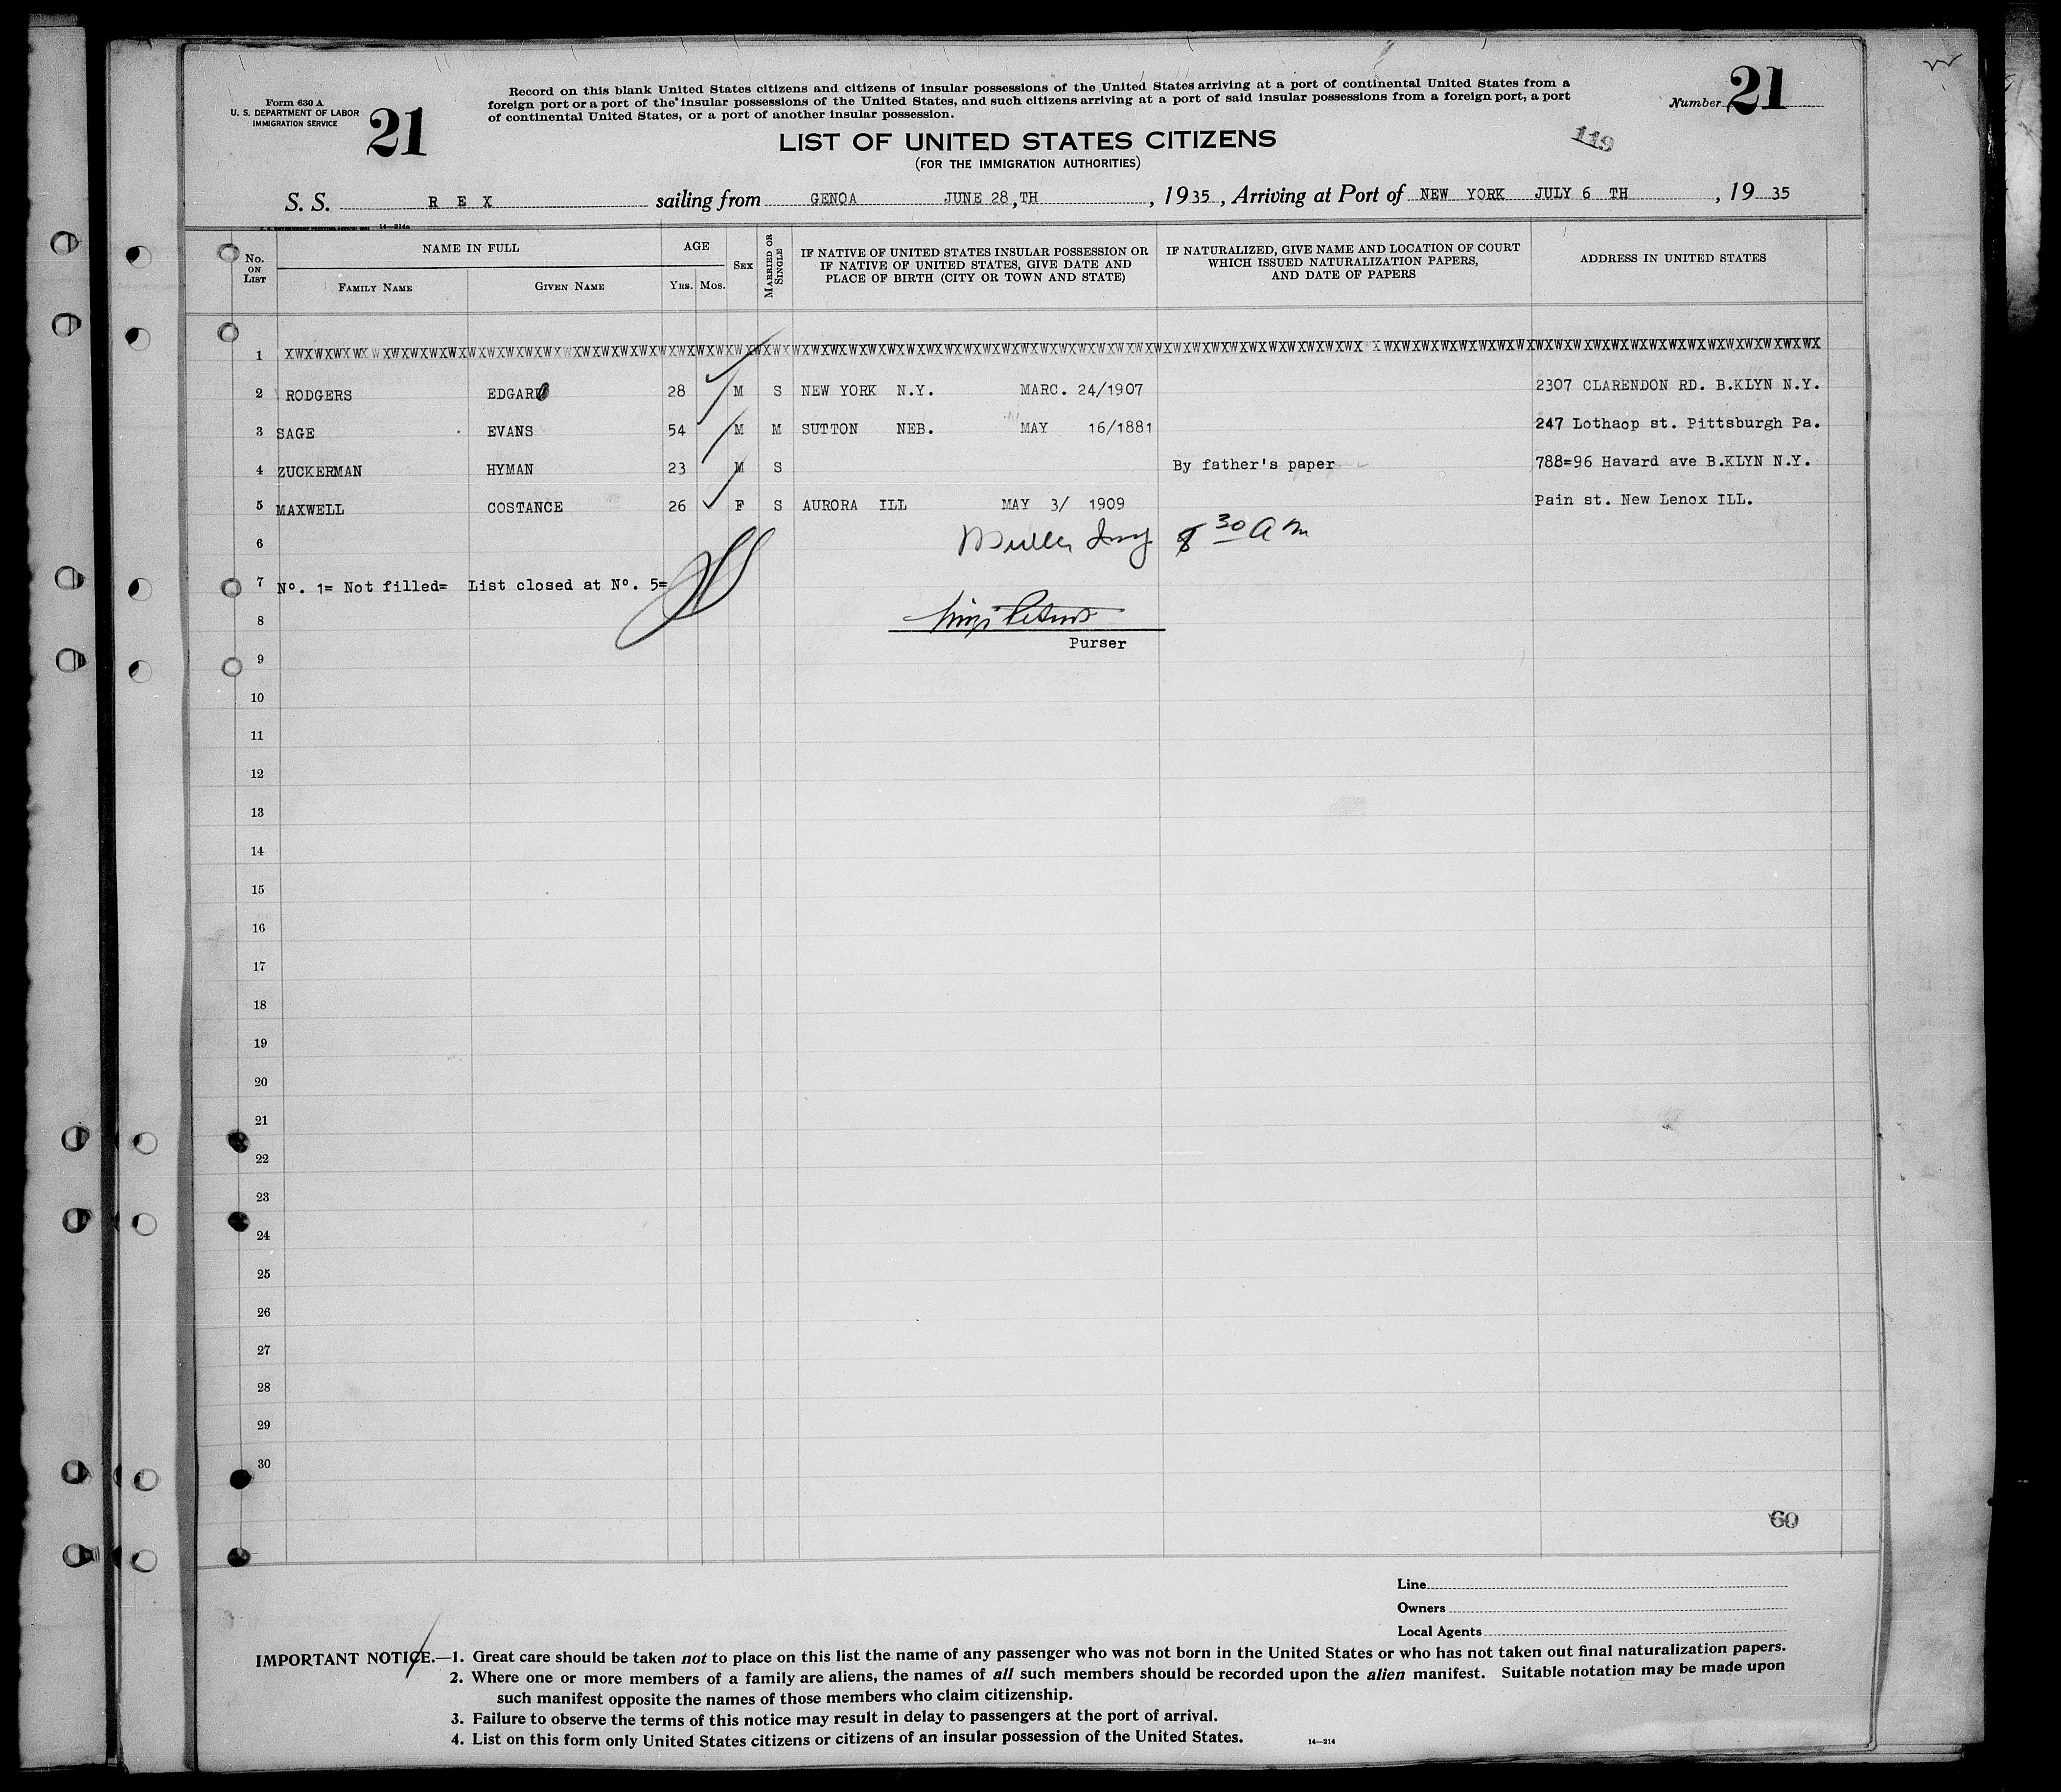 Form 630 A
U. S. DEPARTMENT OF LABOR
IMMIGRATION SERVICE
21
Record on this blank United States citizens and citizens of insular possessions of the United States arriving at a port of continental United States from a
foreign port or a port of the insular possessions of the United States, and such citizens arriving at a port of said insular possessions from a foreign port, a port
of continental United States, or a port of another insular possession.
Number 21
119
LIST OF UNITED STATES CITIZENS
(FOR THE IMMIGRATION AUTHORITIES)
S. S. R E X sailing from GENOA JUNE 28,TH , 1935, Arriving at Port of NEW YORK JULY 6 TH , 19 35
14—214a
No. ON LIST NAME IN FULL FAMILY NAME GIVEN NAME AGE YRS. MOS. SEX MARRIED OR SINGLE IF NATIVE OF UNITED STATES INSULAR POSSESSION OR IF NATIVE OF UNITED STATES, GIVE DATE AND PLACE OF BIRTH (CITY OR TOWN AND STATE) IF NATURALIZED, GIVE NAME AND LOCATION OF COURT WHICH ISSUED NATURALIZATION PAPERS, AND DATE OF PAPERS ADDRESS IN UNITED STATES
1
2 RODGERS EDGARD 28 M S NEW YORK N.Y. MARC. 24/1907 2307 CLARENDON RD. B.KLYN N.Y.
3 SAGE EVANS 54 M M SUTTON NEB. MAY 16/1881 247 Lothaop st. Pittsburgh Pa.
4 ZUCKERMAN HYMAN 23 M S By father's paper 788=96 Havard ave B.KLYN N.Y.
5 MAXWELL COSTANCE 26 F S AURORA ILL MAY 3/ 1909 Pain st. New Lenox ILL.
6 8 30 a m
7 Nº. 1= Not filled= List closed at Nº. 5=
8
Purser
9
10
11
12
13
14
15
16
17
18
19
20
21
22
23
24
25
26
27
28
29
30
60
Line
Owners
Local Agents
IMPORTANT NOTICE.—1. Great care should be taken not to place on this list the name of any passenger who was not born in the United States or who has not taken out final naturalization papers.
2. Where one or more members of a family are aliens, the names of all such members should be recorded upon the alien manifest. Suitable notation may be made upon
such manifest opposite the names of those members who claim citizenship.
3. Failure to observe the terms of this notice may result in delay to passengers at the port of arrival.
4. List on this form only United States citizens or citizens of an insular possession of the United States.
14—214